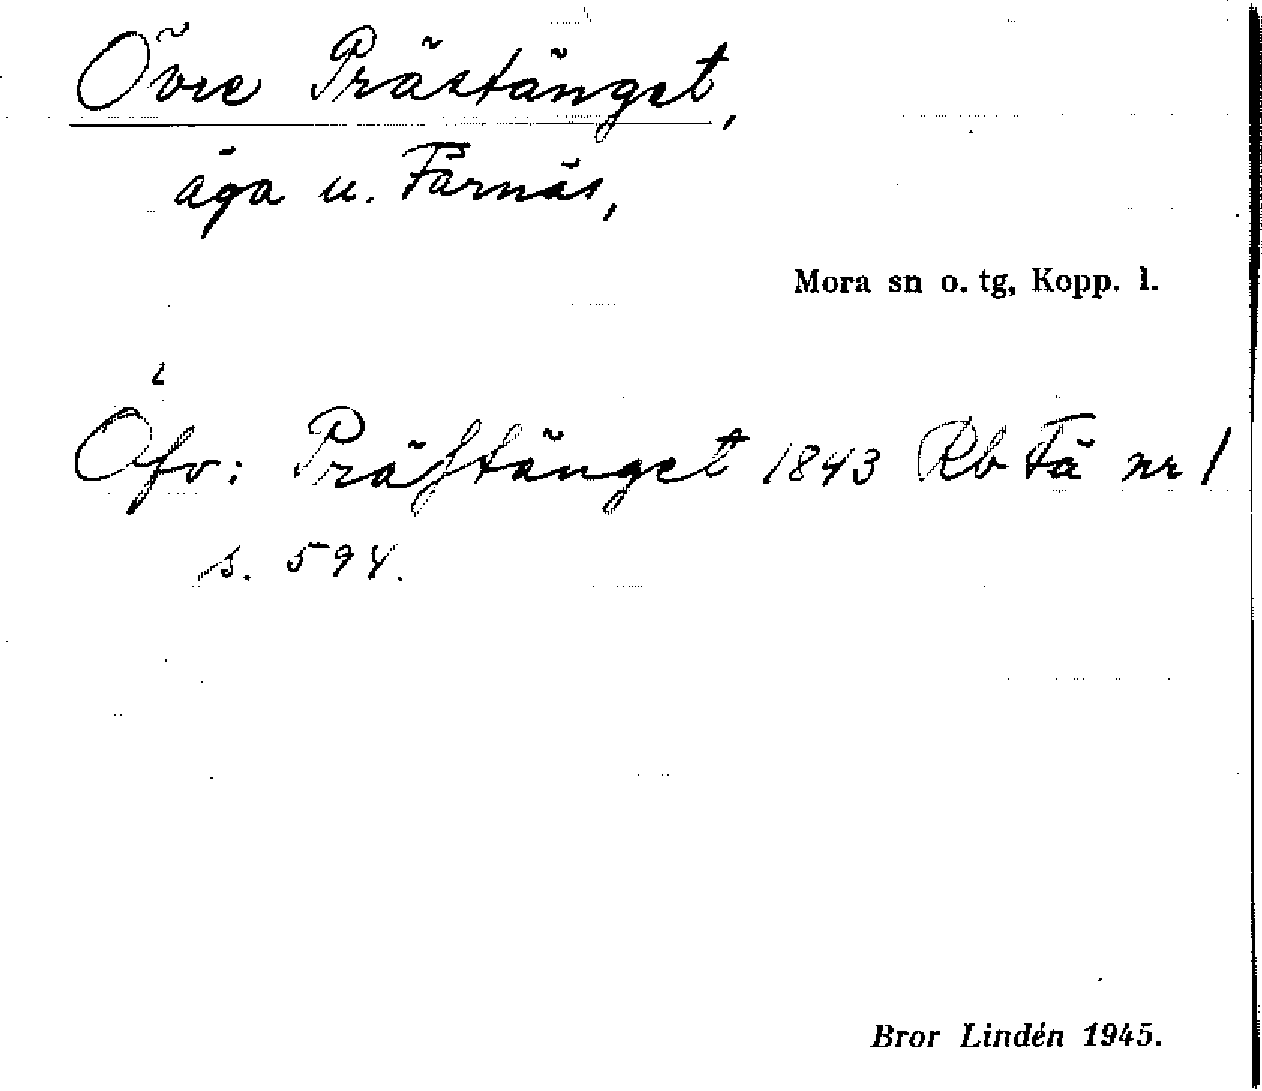 Övre Prästänget,
äga u. Färnäs,
Mora sn o. tg, Kopp. l.
Öfv: Prästänget 1843 Rb Fä nr 1
s. 594.
Bror Lindén 1945.